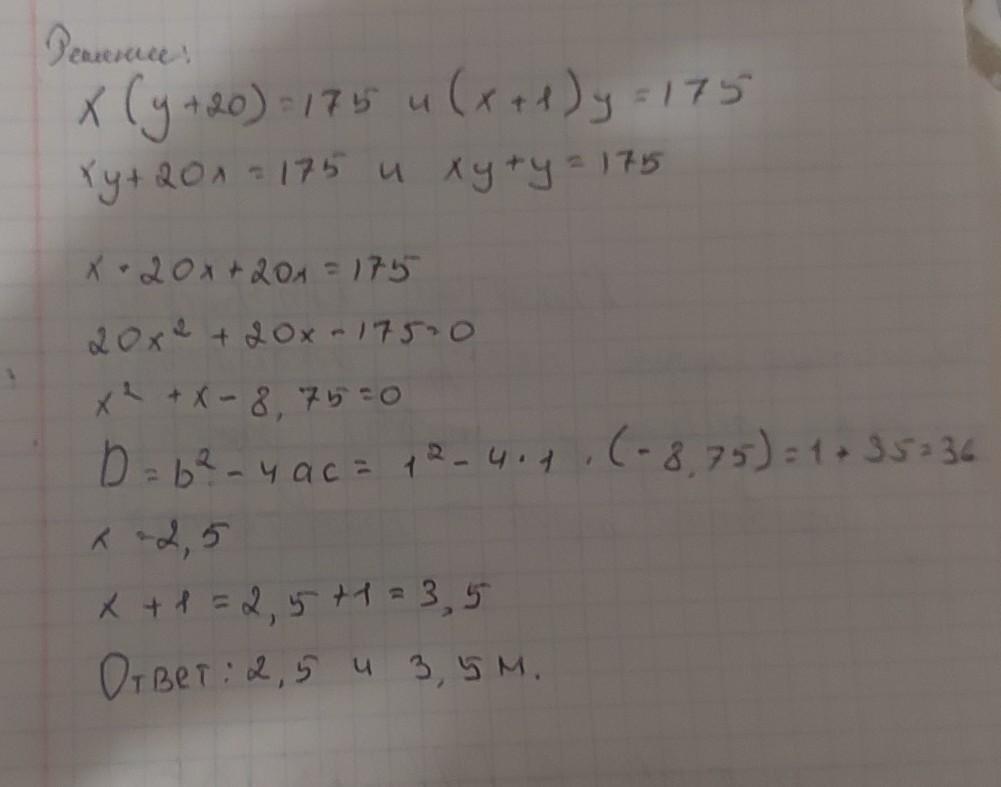 Решение:
x(y+20)=175 и (x+1)y=175
xy+20x=175 и xy+y=175
x·20x+20x=175
20x²+20x-175=0
x²+x-8,75=0
D=b²-4ac=1²-4·1·(-8,75)=1+35=36
x=2,5
x+1=2,5+1=3,5
Ответ: 2,5 и 3,5 м.